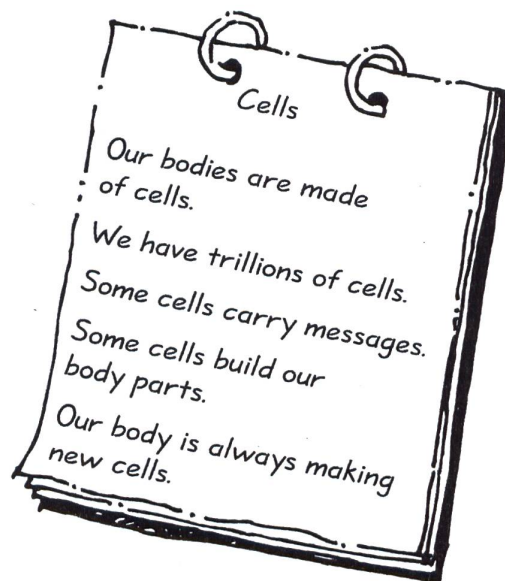 Cells
Our bodies are made
of cells.
We have trillions of cells.
Some cells carry messages.
Some cells build our
body parts.
Our body is always making
new cells.